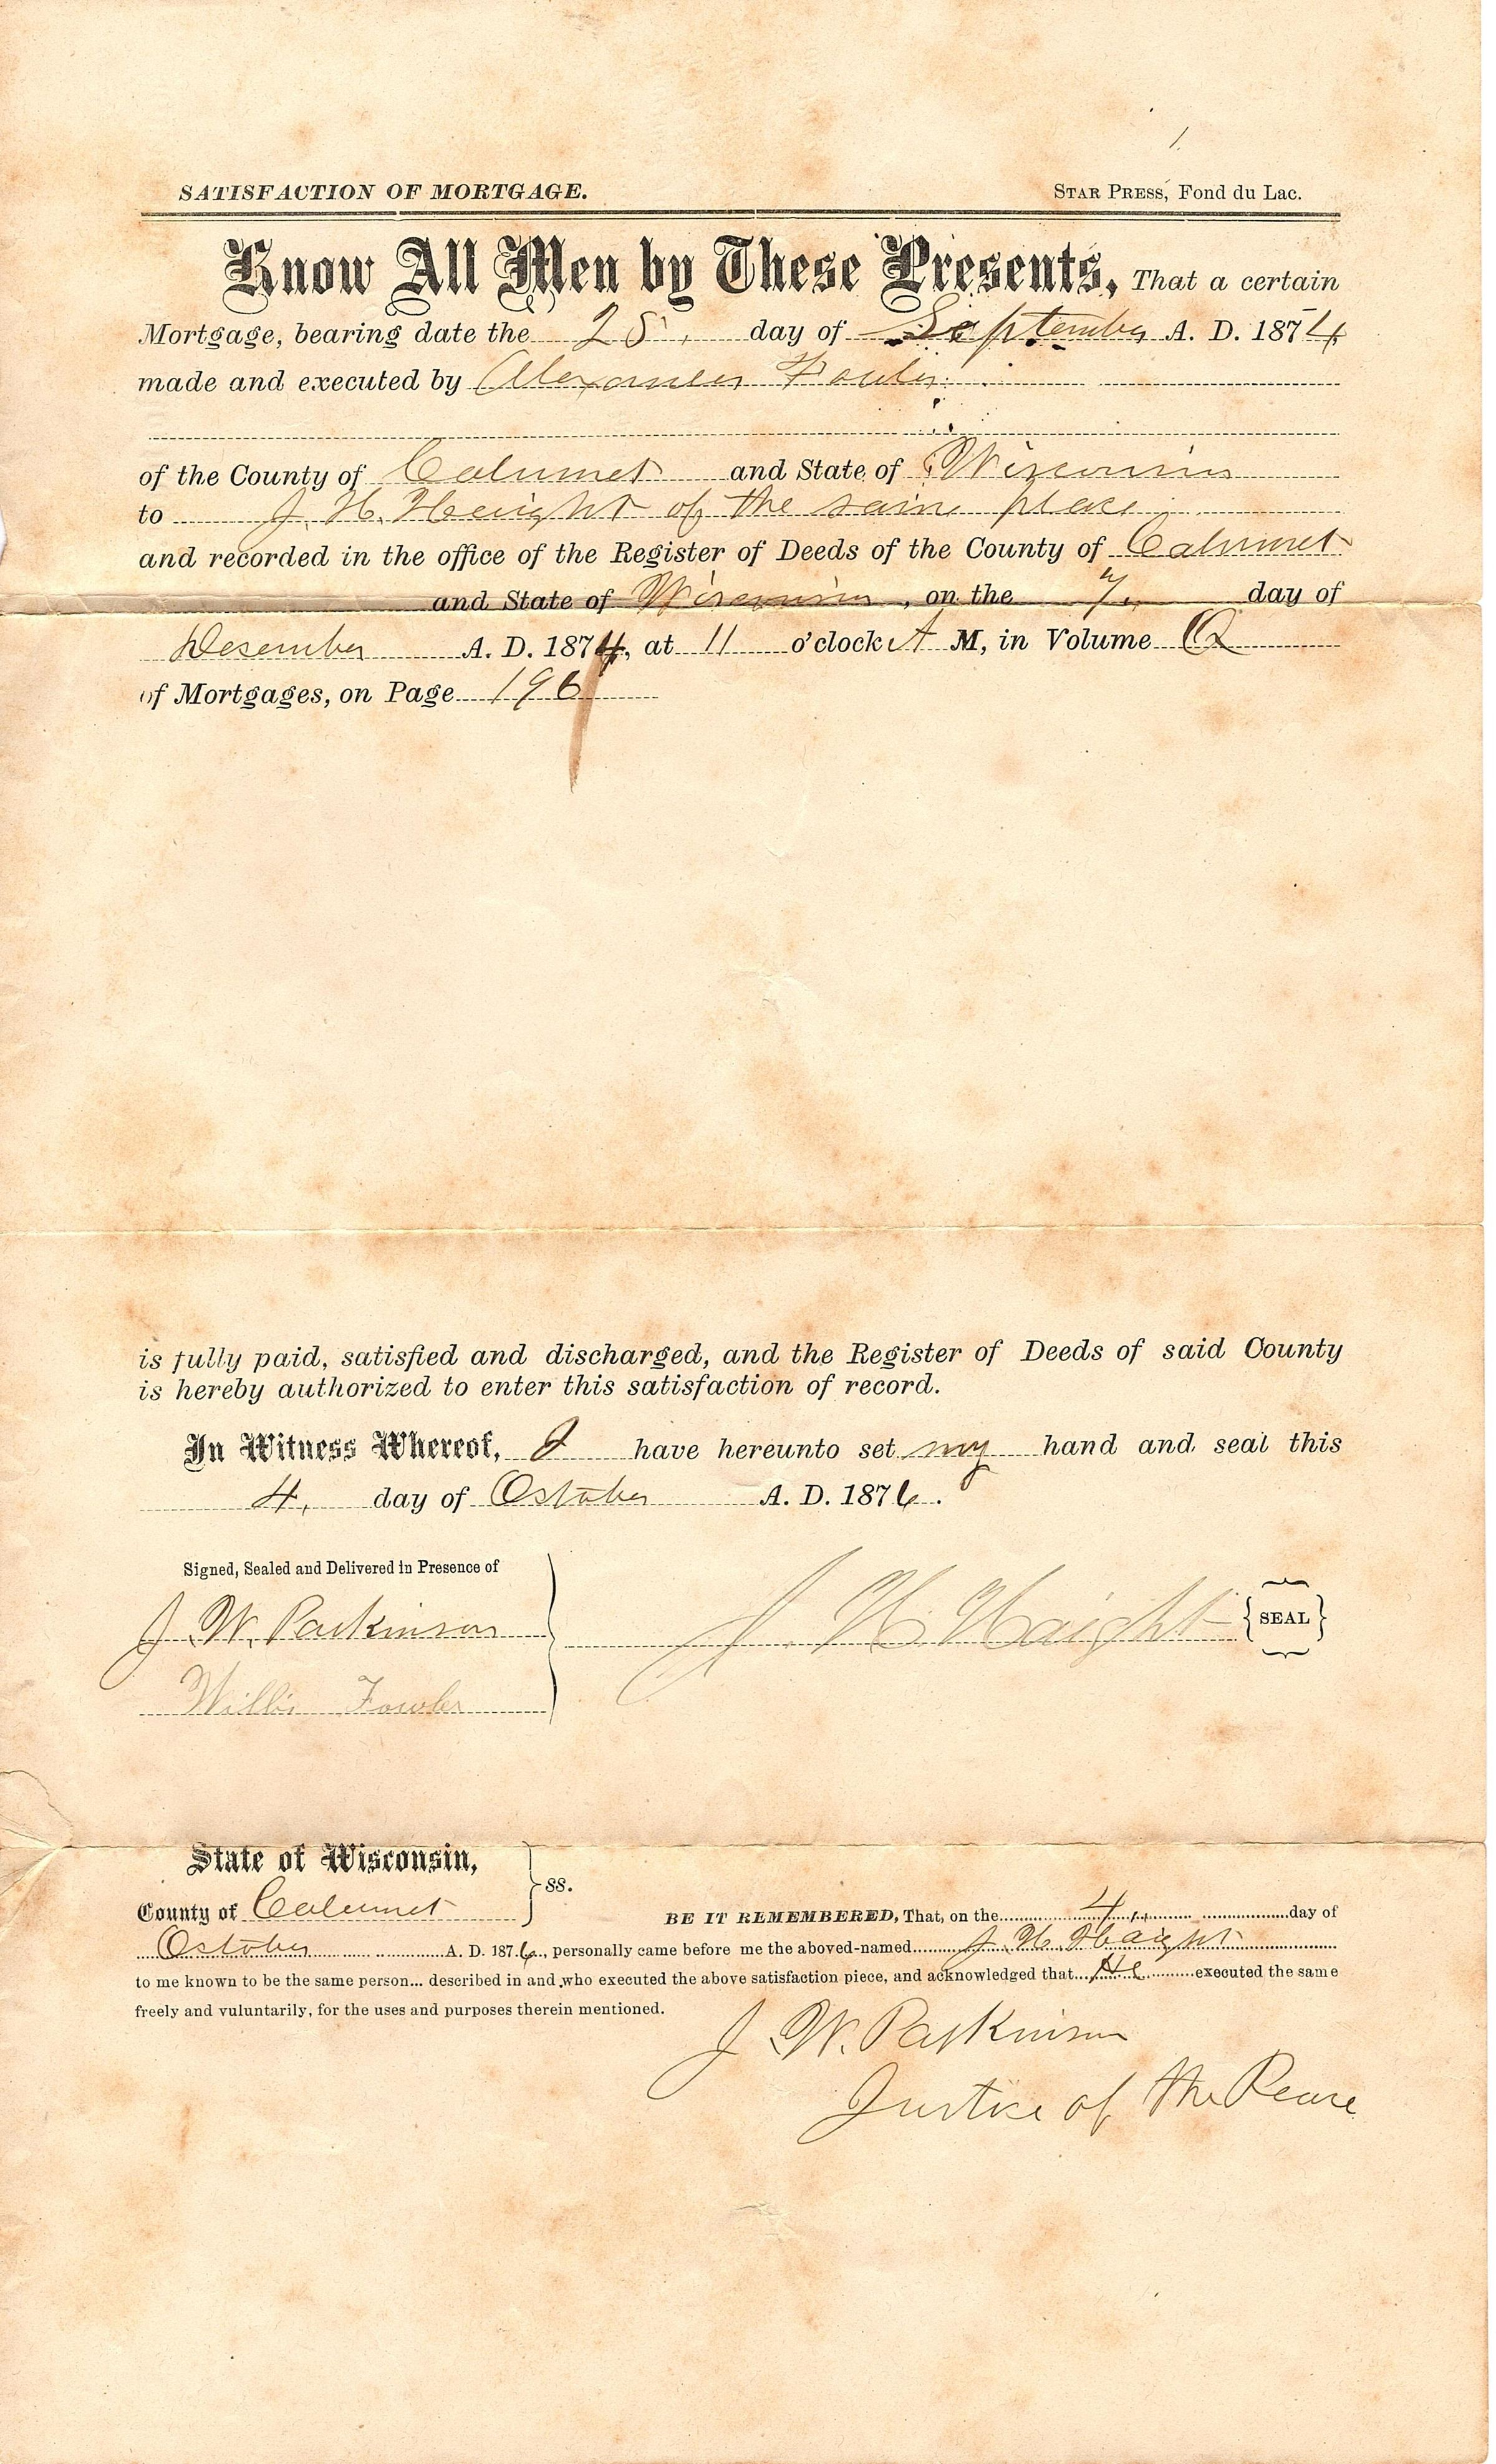 1.
SATISFACTION OF MORTGAGE. STAR PRESS, Fond du Lac.
Know All Men by These Presents, That a certain
Mortgage, bearing date the 25, day of September A. D. 1874
made and executed by Alexander Fowler
of the County of Calumet and State of Wisconsin
to J. H. Haight of the same place
and recorded in the office of the Register of Deeds of the County of Calumet
and State of Wisconsin, on the 7" day of
Desember A. D. 1874, at 11 o'clock A M, in Volume Q
of Mortgages, on Page 196
is fully paid, satisfied and discharged, and the Register of Deeds of said County
is hereby authorized to enter this satisfaction of record.
In Witness Whereof, I have hereunto set my hand and seal this
4, day of Octtober A. D. 1876.
Signed, Sealed and Delivered in Presence of
J. W. Parkinson J. H. Haight {SEAL}
Willis Fowler
State of Wisconsin,
ss.
County of Calumet
BE IT REMEMBERED, That, on the 4" day of
October A. D. 1876, personally came before me the aboved-named J. H. Haight
to me known to be the same person... described in and who executed the above satisfaction piece, and acknowledged that He executed the same
freely and vuluntarily, for the uses and purposes therein mentioned.
J. W. Parkinson
Justice of the Peace